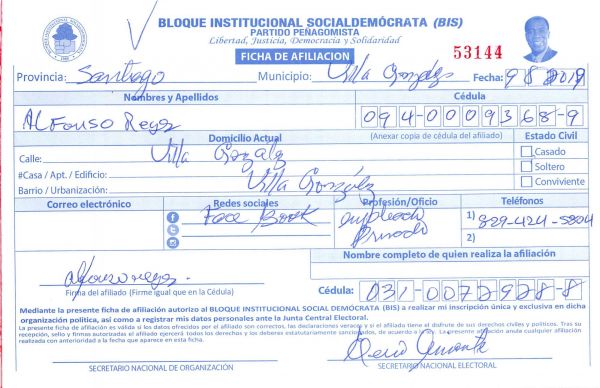 BLOQUE INSTITUCIONAL SOCIALDEMÓCRATA (BIS)
PARTIDO PEÑAGOMISTA
Libertad, Justicia, Democracia y Solidaridad
FICHA DE AFILIACION
53144
Provincia: Santiago Municipio: Villa González Fecha: 9 8 2019
Nombres y Apellidos Cédula
ALFonso Reyes 094-0009368-9
Domicilio Actual (Anexar copia de cédula del afiliado) Estado Civil
Calle: Villa Gonzalez Casado
#Casa / Apt. / Edificio: Soltero
Barrio / Urbanización: Villa González Conviviente
Correo electrónico Redes sociales Profesión/Oficio Teléfonos
Face Book empleado Privado 1) 829-424-5804
2)
Nombre completo de quien realiza la afiliación
alfonso reyes
Firma del afiliado (Firme igual que en la Cédula) Cédula: 031-0072928-8
Mediante la presente ficha de afiliación autorizo al BLOQUE INSTITUCIONAL SOCIAL DEMÓCRATA (BIS) a realizar mi inscripción única y exclusiva en dicha
organización política, así como a registrar mis datos personales ante la Junta Central Electoral.
La presente ficha de afiliación es válida si los datos ofrecidos por el afiliado son correctos, las declaraciones veraces y si el afiliado tiene el disfrute de sus derechos civiles y políticos. Tras su
recepción, sello y firmas autorizadas el afiliado ejercerá todos los derechos y los deberes estatutariamente sancionados, de acuerdo a la Ley. La presente afiliación anula cualquier afiliación
realizada con anterioridad a la fecha que aparece en esta ficha.
SECRETARIO NACIONAL DE ORGANIZACIÓN SECRETARIO NACIONAL ELECTORAL